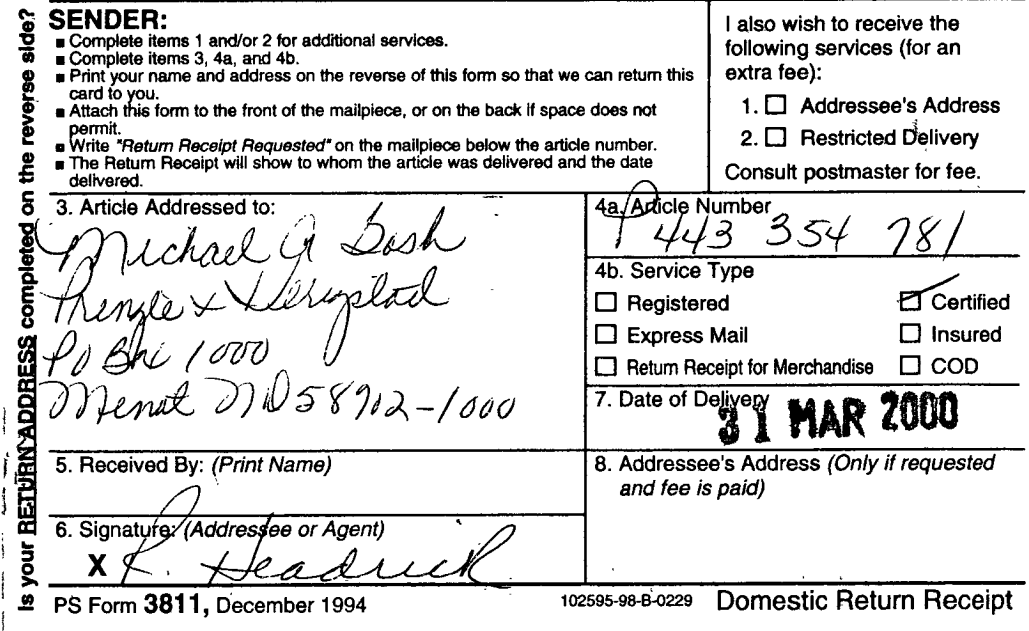 Is your RETURN ADDRESS completed on the reverse side?
SENDER:
■ Complete items 1 and/or 2 for additional services.
■ Complete items 3, 4a, and 4b.
■ Print your name and address on the reverse of this form so that we can return this
card to you.
■ Attach this form to the front of the mailpiece, or on the back if space does not
permit.
■ Write "Return Receipt Requested" on the mailpiece below the article number.
■ The Return Receipt will show to whom the article was delivered and the date
delivered.
I also wish to receive the
following services (for an
extra fee):
1. ☐ Addressee's Address
2. ☐ Restricted Delivery
Consult postmaster for fee.
3. Article Addressed to:
Michael A
PO Box 1000
Minot ND 58702-1000
4a. Article Number
P 443 354 781
4b. Service Type
☐ Registered
☑ Certified
☐ Express Mail
☐ Insured
☐ Return Receipt for Merchandise
☐ COD
7. Date of Delivery
31 MAR 2000
5. Received By: (Print Name)
8. Addressee's Address (Only if requested
and fee is paid)
6. Signature: (Addressee or Agent)
X R. Headrick
PS Form 3811, December 1994
102595-98-B-0229
Domestic Return Receipt